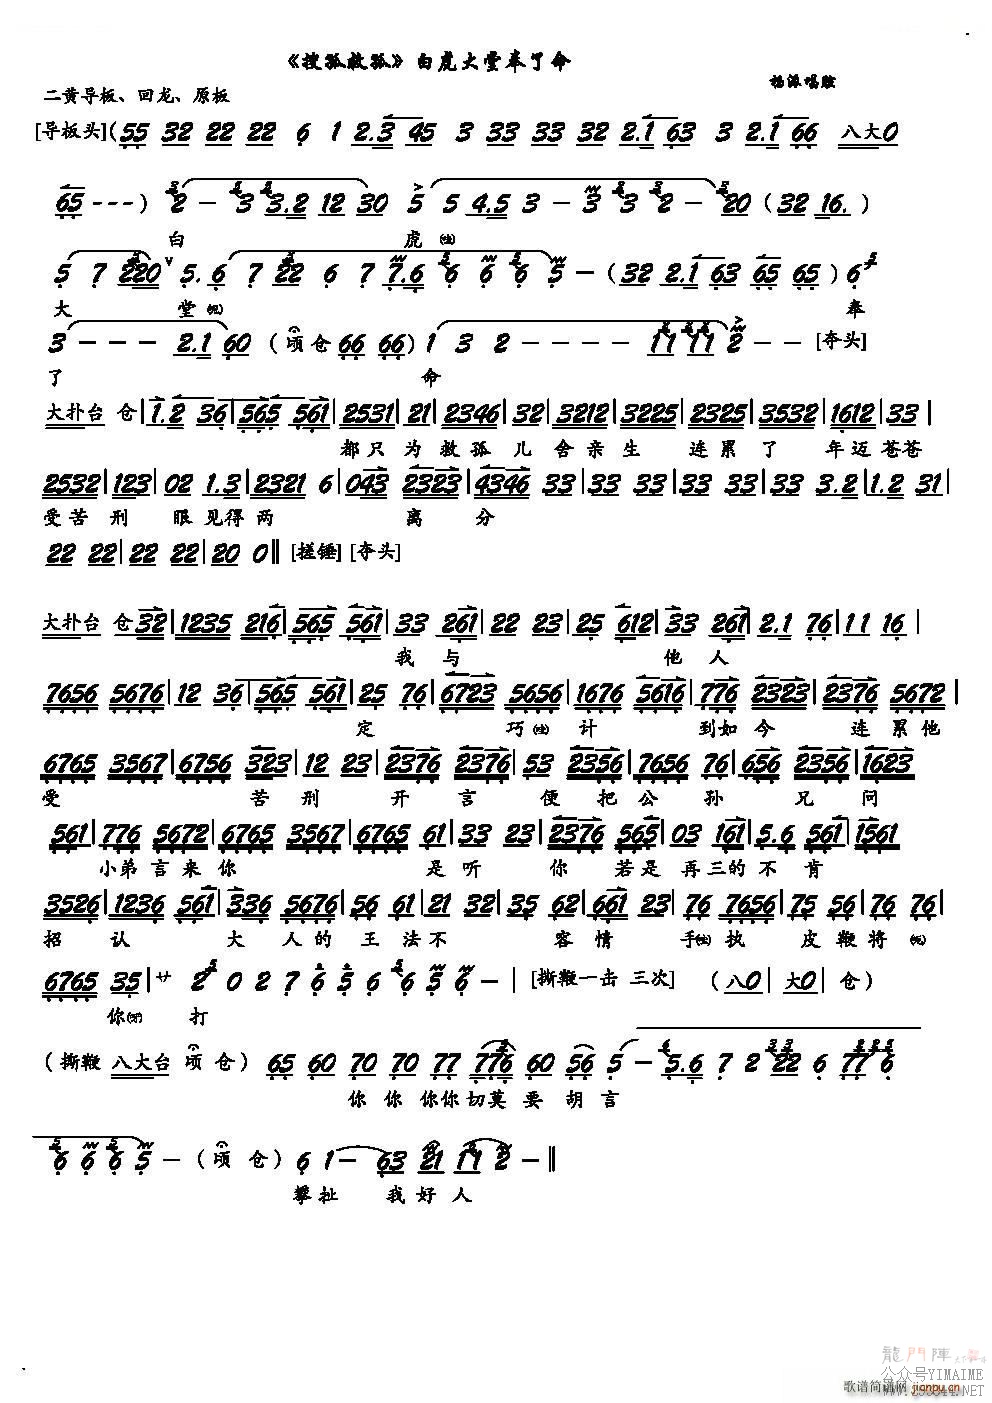 《搜孤救孤》白虎大堂奉了命
杨派唱腔
二黄导板、回龙、原板
[导板头] (55 32 22 22 6 1 2.3 45 3 33 33 32 2.1 63 3 2.1 66 八大0
65 - - - ) 2 - 3 3.2 12 30 5 5 4.5 3 - 3 3 2 - 20 (32 16.)
白 虎
5 7 220 5. 6 7 22 6 7 7.6 6 6 6 5 - (32 2.1 63 65 65) 6
大 堂 奉
3 - - - 2.1 60 (顷 仓 66 66) 1 3 2 - - - - 11 11 2 - - [夺头]
了 命
大扑台 仓 | 1.2 36 | 565 561 | 2531 | 21 | 2346 | 32 | 3212 | 3225 | 2325 | 3532 | 1612 | 33 |
都只为救孤儿舍亲生 连累了 年迈苍苍
2532 | 123 | 02 1.3 | 2321 6 | 043 2323 | 4346 33 | 33 33 | 33 33 | 33 3.2 | 1.2 31 |
受苦刑 眼见得两 离 分
22 22 | 22 22 | 20 0 ‖ [搓锤] [夺头]
大扑台 仓 32 | 1235 216 | 565 561 | 33 261 | 22 23 | 25 612 | 33 261 | 2.1 76 | 11 16 |
我与 他人
7656 5676 | 12 36 | 565 561 | 25 76 | 6723 5656 | 1676 5616 | 776 2323 | 2376 5672 |
定 巧 计 到如今 连累他
6765 3567 | 6756 323 | 12 23 | 2376 2376 | 53 2356 | 7656 76 | 656 2356 | 1623
受 苦刑 开言 便把公孙兄问
561 | 776 5672 | 6765 3567 | 6765 61 | 33 23 | 2376 565 | 03 161 | 5.6 561 | 1561
小弟言来你 是听 你 若是再三的不肯
3526 | 1236 561 | 336 5676 | 56 61 | 21 32 | 35 62 | 661 23 | 76 7656 | 75 56 | 76 76 |
招认 大人的王法不 容情 手 执 皮鞭将
6765 35 | サ 2 0 2 7 6 5 6 6 5 6 - | [撕鞭一击 三次] (八0 | 大0 | 仓)
你 打
(撕鞭 八大台 顷 仓) 65 60 70 70 77 776 60 56 5 - 5.6 7 2 22 6 77 6
你 你 你你切莫要胡言
6 6 6 5 - (顷 仓) 6 1 - 63 21 11 2 - ‖
攀扯 我好人
龍門陣
公众号YIMAIME
歌谱简谱网 jianpu.cn